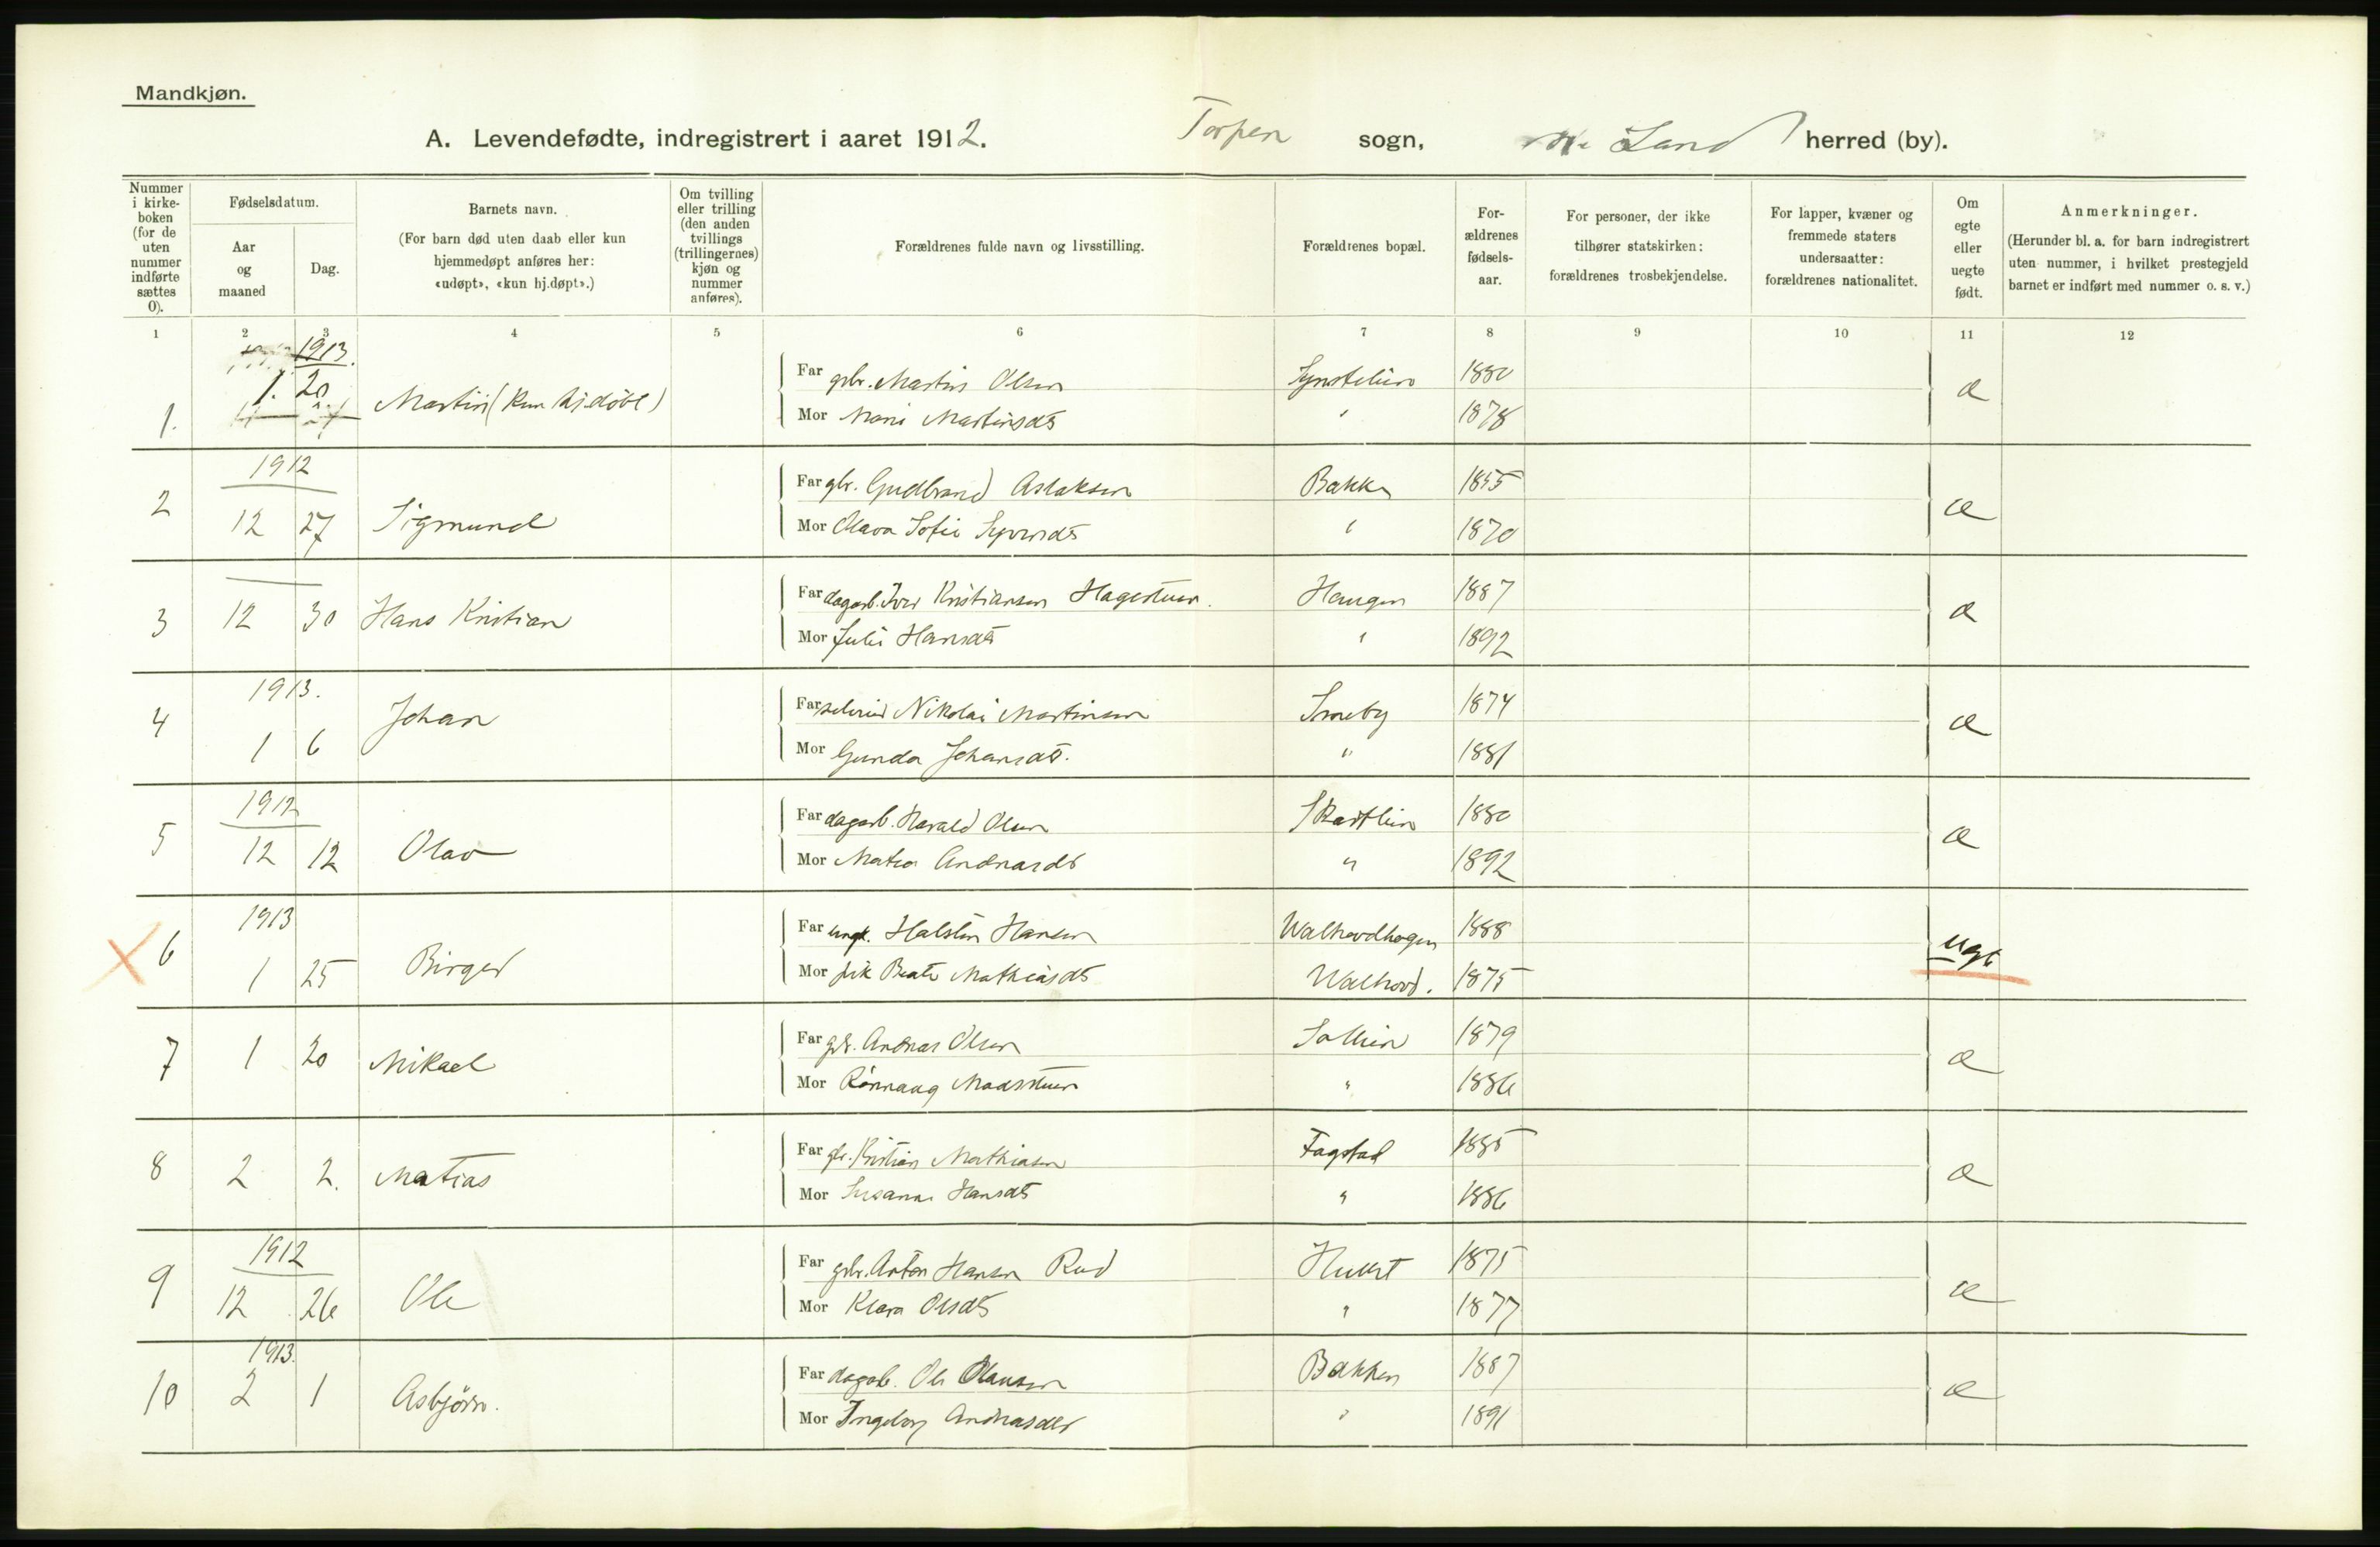 Mandkjøn.
A. Levendefødte, indregistrert i aaret 1912. Torpen sogn, N. Land herred (by).
Nummer i kirkeboken (for de uten nummer indførte sættes 0).
Fødselsdatum.
Aar og maaned
Dag.
Barnets navn.
(For barn død uten daab eller kun hjemmedøpt anføres her: «udøpt», «kun hj.døpt».)
Om tvilling eller trilling (den anden tvillings (trillingernes) kjøn og nummer anføres).
Forældrenes fulde navn og livsstilling.
Forældrenes bopæl.
Forældrenes fødselsaar.
For personer, der ikke tilhører statskirken: forældrenes trosbekjendelse.
For lapper, kvæner og fremmede staters undersaatter: forældrenes nationalitet.
Om egte eller uegte født.
Anmerkninger.
(Herunder bl. a. for barn indregistrert uten nummer, i hvilket prestegjeld barnet er indført med nummer o. s. v.)
1 2 3 4 5 6 7 8 9 10 11 12
1913.
1. 1. 20 Martin (kun hj.døbt) Far gbr. Martin Olsen 1880 æ
Mor Mari Martinsdt " 1878
1912
2 12 27 Sigmund Far gbr. Gudbrand Aslaksen Bakke 1855 æ
Mor Olava Sofie Syversdt " 1870
3 12 30 Hans Kristian Far dagarb. Iver Kristiansen Hagestuen. Haugen 1887 æ
Mor Julie Hansdt " 1892
1913.
4 1 6 Johan Far Nikolai Martinsen Smeby 1874 æ
Mor Gunda Johansdt. " 1881
1912
5 12 12 Olav Far dagarb. Harald Olsen 1880 æ
Mor Matea Andreasdt " 1892
1913
6 1 25 Birger Far ungk. Halsten Hansen Walhovdhagen 1888 ugt
Mor pik Beate Mathiasdt Walhovd. 1875
7 1 20 Mikael Far gbr. Andreas Olsen Sollien 1879 æ
Mor Rønnaug Madsstuen " 1886
8 2 2. Matias Far gbr. Kristian Mathiasen Fagstad 1885 æ
Mor Susanne Hansdt " 1886
1912
9 12 26 Ole Far gbr. Anton Hansen Rud 1875 æ
Mor Klara Olsdt " 1877
1913.
10 2 1 Asbjörn. Far dagarb. Ole Olausen Bakken 1887 æ
Mor Ingeborg Andreasdt " 1891